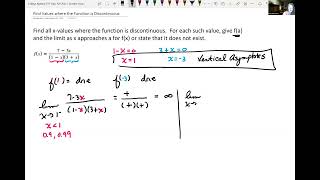 Find Values where the Function is Discontinuous
Find all x-values where the function is discontinuous. For each such value, give f(a)
and the limit as x approaches a for f(x) or state that it does not exist.
f(x) = 7 − 3x / (1 − x)(3 + x)
1-x=0 3+x=0
x=1 x=-3 Vertical Asymptotes
f(1) = dne f(-3) dne
lim x→1⁻ 7-3x / (1-x)(3+x) = + / (+)(+) = ∞ lim x→
x<1
0.9, 0.99